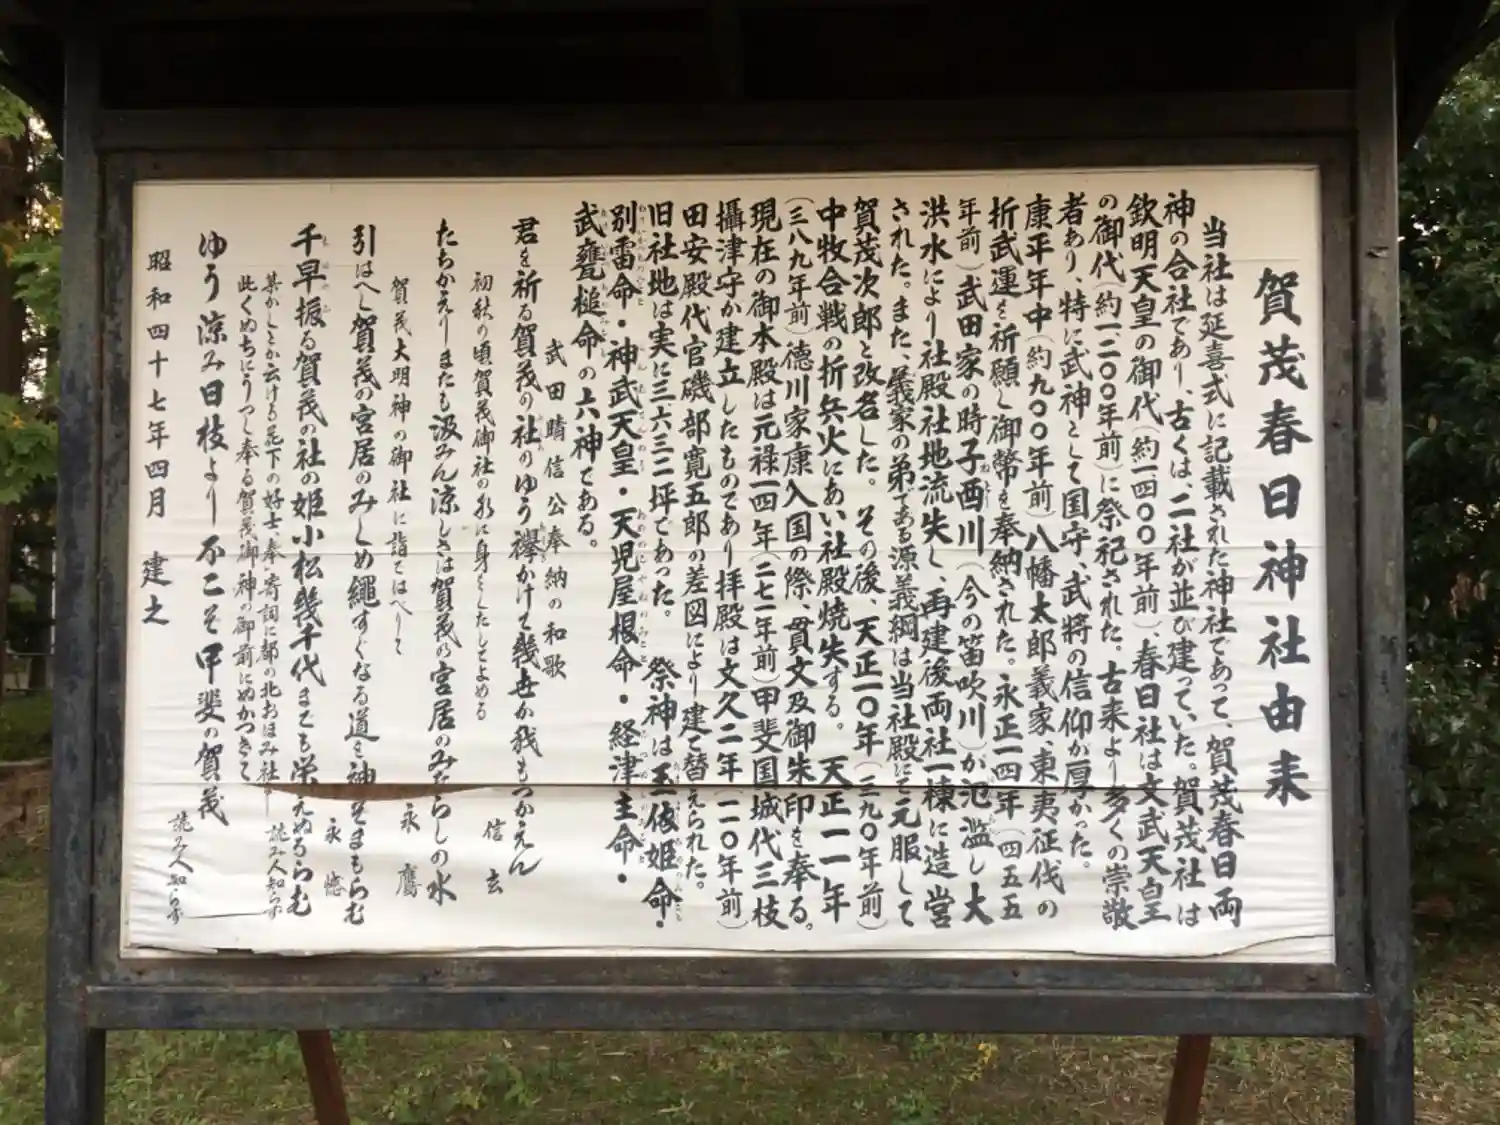 賀茂春日神社由来
当社は延喜式に記載された神社であって、賀茂春日両
神の合社であり、古くは、二社が並び建っていた。賀茂社は
欽明天皇の御代(約一四〇〇年前)、春日社は文武天皇
の御代(約一二〇〇年前)に祭祀された。古来より多くの崇敬
者あり、特に武神として国守、武将の信仰が厚かった。
康平年中(約九〇〇年前)八幡太郎義家、東夷征伐の
折武運を祈願し御幣を奉納された。永正一四年(四五五
年前)武田家の時子酉川(今の笛吹川)が氾濫し大
洪水により社殿社地流失し、再建後両社一棟に造営
された。また、義家の弟である源義綱は当社殿にて元服して
賀茂次郎と改名した。その後、天正一〇年(三九〇年前)
中牧合戦の折兵火にあい社殿焼失する。天正一一年
(三八九年前)徳川家康入国の際、貫文及御朱印を奉る。
現在の御本殿は元禄一四年(二七一年前)甲斐国城代三枝
攝津守が建立したものであり拝殿は文久二年(一一〇年前)
田安殿代官磯部寛五郎の差図により建て替えられた。
旧社地は実に三六三二坪であった。 祭神は玉依姫命・
別雷命・神武天皇・天児屋根命・経津主命・
武甕槌命の六神である。
武田晴信公奉納の和歌
君を祈る賀茂の社のゆう襷かけて幾世か我もつかえん
信玄
初秋の頃賀茂御社の
たちかえりまたも汲みん涼しさは賀茂の宮居のみたらしの水
永鷹
賀茂大明神の御社に詣ではべりて
引はへし賀茂の宮居のみしめ繩すぐなる道を神ぞまもらむ
永
千早振る賀茂の社の姫小松幾千代までも栄えぬるらむ
詠み人知らず
此くぬちにうつし奉る賀茂御神の御前にぬかつきて
ゆう涼み日枝よりふこそ甲斐の賀茂
詠み人知らず
昭和四十七年四月 建之